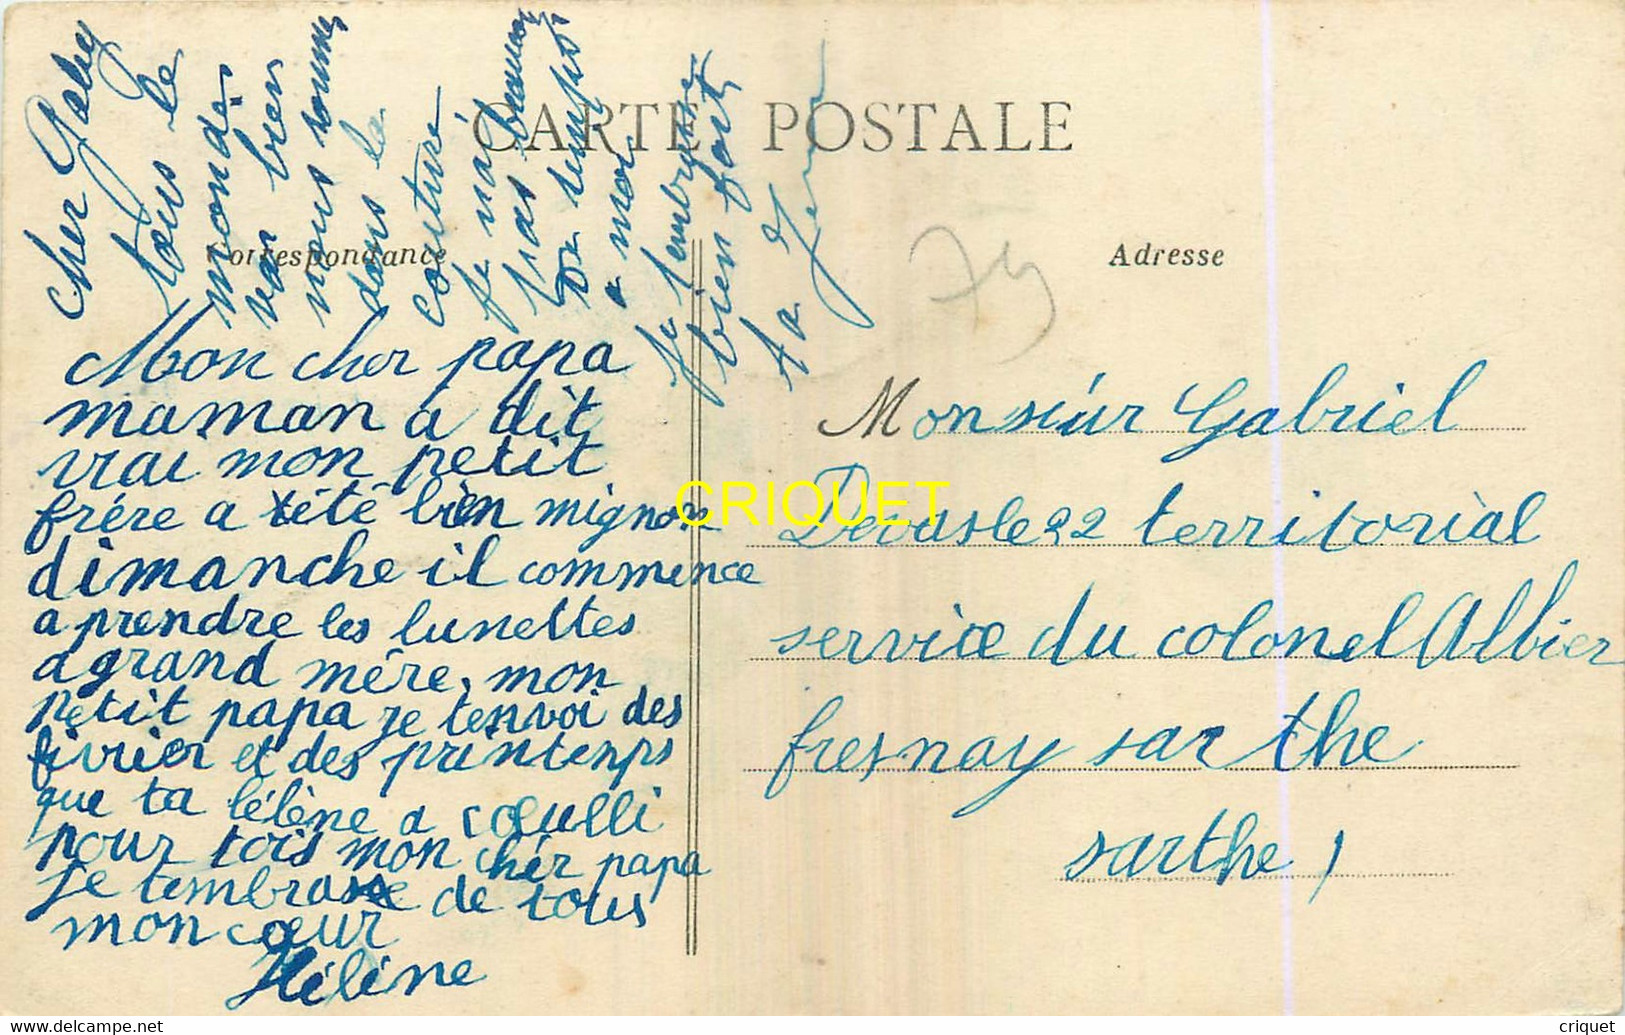 CARTE POSTALE
Correspondance
Adresse
Cher Gaby
tous le
monde
va bien
nous somme
dans la
couture
je nai
pas beaucoup
de temps
a moi
je tembrasse
bien fort
ta
Mon cher papa
maman a dit
vrai mon petit
frére a été bien mignon
dimanche il commence
a prendre les lunettes
a grand mére, mon
petit papa je tenvoi des
fivrier et des printemps
que ta lélène a coeulli
pour tois mon chér papa
je tembrasse de tous
mon cœur
Hélène
75
Monsieur Gabriel
Devasle 22 territorial
service du colonel Albier
fresnay sar the
sarthe
CRIQUET
www.delcampe.net
criquet